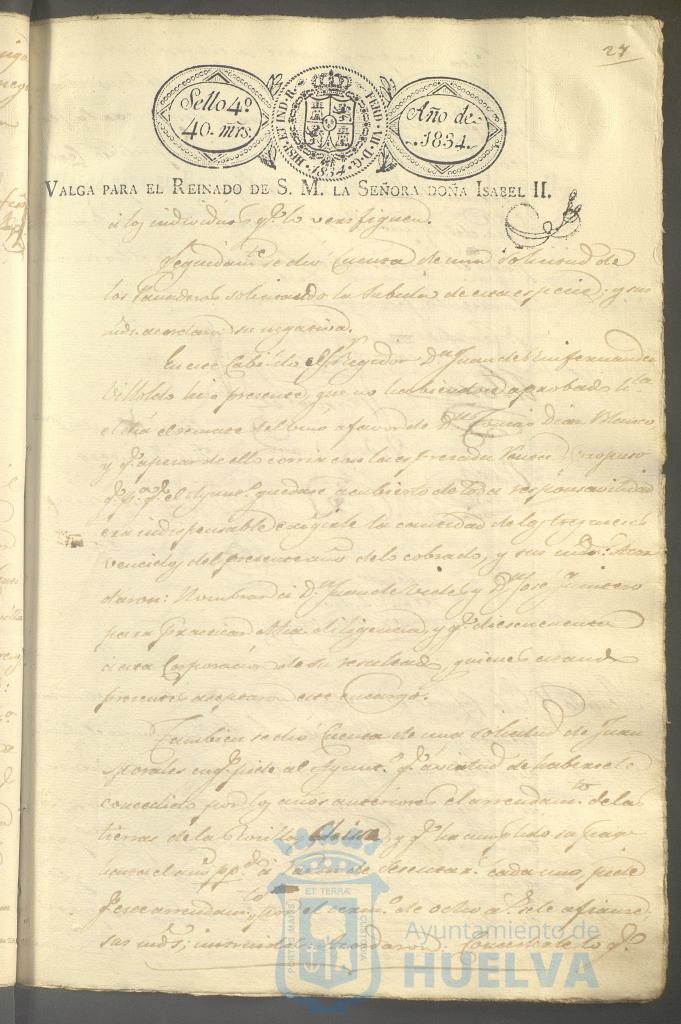 27
Sello 4º
40. mrs.
HISP. ET IND. R. FERD. VII. D. G.
1834
Año de
1834.
VALGA PARA EL REINADO DE S. M. LA SEÑORA DOÑA ISABEL II.
á los individuos qe. lo verifiquen.
Seguidamte. se dió Cuenta de una solicitud de
los Panaderos solicitando la subida de esta especie; y sus
mds. acordaron su negativa.
En este Cabildo el Sr. Regidor Dn. Juan de Fernandez
Villoldo hizo presente, que no habiendose aprobado hta.
el dia el remate del vino a favor de Dn. Tomás Diaz Blanco
y qe. apesar de ello corria con la expresada Propuso
qe. pa. qe. el Ayunto. quedase acubierto de toda responsavilidad
era indispensable exigirle la cantidad de los tres meses
vencidos del presente año de lo cobrado, y sus mds. Acor
daron: Nombrar á Dn. Juan de y Dn. José
para practicar dha diligencia, y qe. diesen cuenta
a esta Corporacion de su resultado, quienes estando
presentes aceptaron este encargo.
Tambien se dió Cuenta de una solicitud de Juan
Morales en qe. pide al Ayunto. qe. á virtud de haberse le
concedido por los años anteriores el arrendamto. de las
tierras de la y qe. ha cumplido su pago
hasta el año ppdo. á razon de cada uno, pide
qe. ese arrendamto. por el termo. de ocho as. se le afiance
sus mds; Acordaron: Concederle lo qe.
PORTUS MARIS
ET TERRÆ
CUSTODIA
Ayuntamiento de
HUELVA